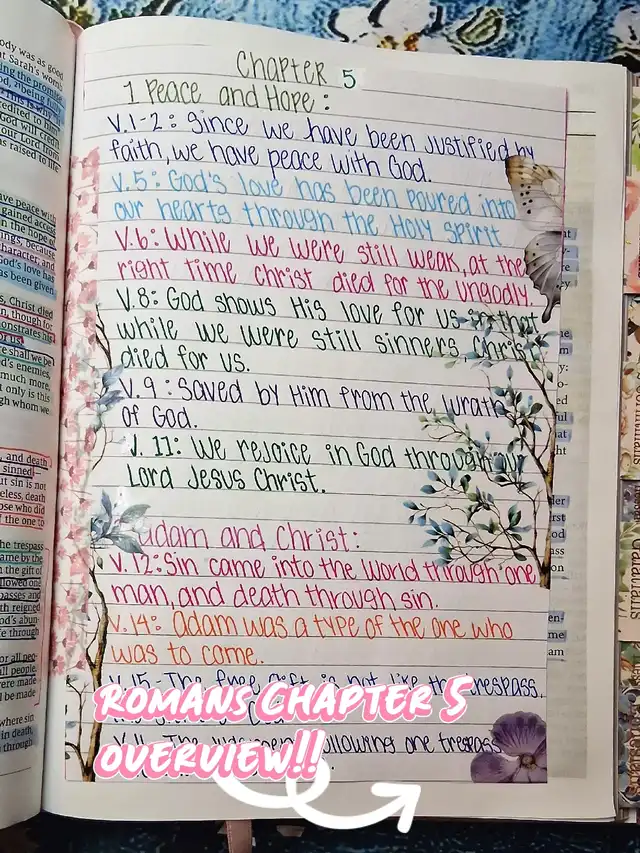 Chapter 5
1 Peace and Hope:
V.1-2: Since we have been justified by
faith, we have peace with God.
V.5: God's love has been poured into
our hearts through the Holy Spirit
V.6: While we were still weak, at the
right time Christ died for the ungodly.
V.8: God shows His love for us in that
while we were still sinners Christ
died for us.
V.9: Saved by Him from the wrath
of God.
V.11: We rejoice in God through our
Lord Jesus Christ.
adam and Christ:
V.12: Sin came into the world through one
man, and death through sin.
V.14: Adam was a type of the one who
was to come.
V.15- The free gift is not like the trespass.
following one trespass
ROMANS CHAPTER 5
OVERVIEW!!
ody was as good
at Sarah's womb
ing the promise
God, being fully
This is why
redited to him
God will credit
our Lord from
as raised to life
ave peace with
gained access
n the hope of
ings, because
character, and
God's love has
as been given
s, Christ died
n, though for
monstrates his
or us
e shall we be
d's enemies,
much more,
t only is this
gh whom we
, and death
sinned—
ut sin is not
eless, death
ose who did
f the one to
he trespass
ame by the
n the gift of
llowed one
passes and
th reigned
od's abun-
fe through
or all peo-
ll people.
were made
ll be made
where sin
in death,
through